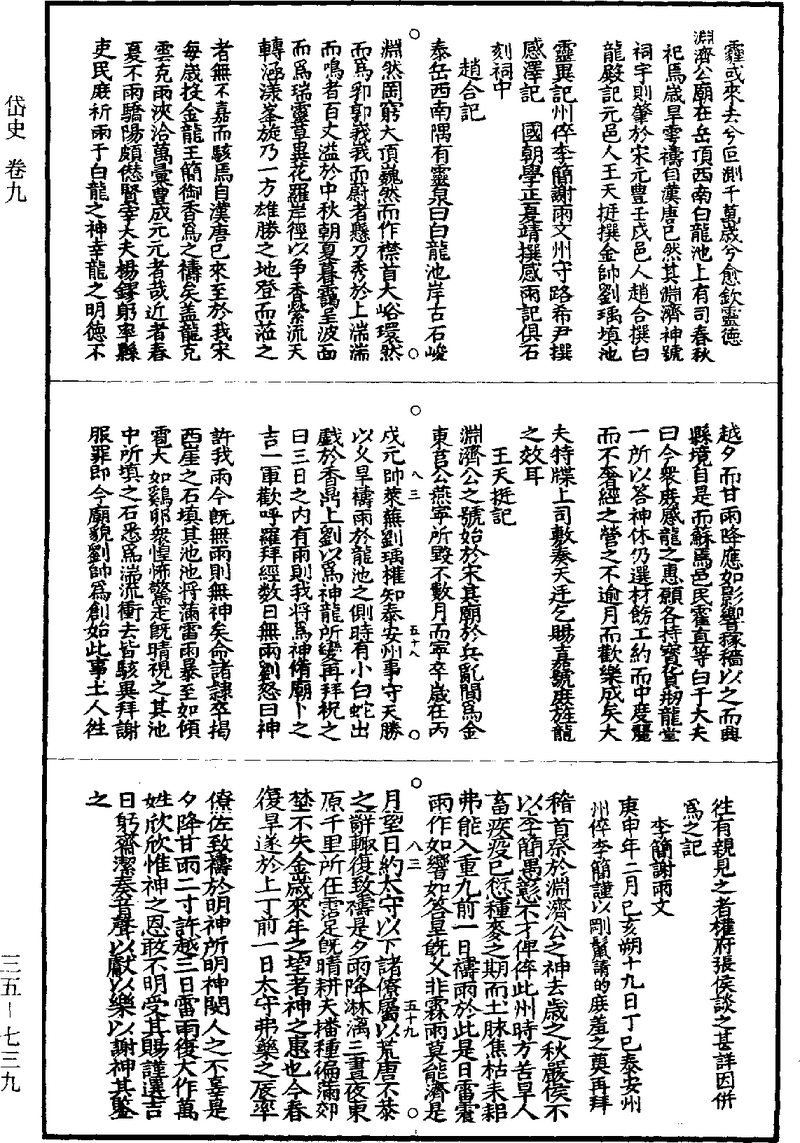 霾或來去兮叵測千萬歲兮愈欽靈德
淵濟公廟在岳頂西南白龍池上有司春秋
祀焉歲旱雩禱自漢唐已然其淵濟神號
祠宇則肇於宋元豐壬戌邑人趙合撰白
龍殿記元邑人王天挺撰金帥劉瑀填池
靈異記州倅李簡謝雨文州守路希尹撰
感澤記　國朝學正夏靖撰感雨記俱石
刻祠中
趙合記
泰岳西南隅有靈泉曰白龍池岸古石峻
淵然罔窮大頂巍然而作襟首大峪環然
而爲郛郭峩我而蔚者懸刀秀於上湍湍
而鳴者百丈溢於中秋朝夏暮靄呈波面
而爲瑞靈草異花羅岸徑以争香縈流天
轉涵漾峯旋乃一方雄勝之地登而蒞之
者無不嘉而駭焉自漢唐已來至於我宋
每歲投金龍玉簡御香爲之禱矣盖龍克
雲克雨浹洽萬彚豊成元元者哉近者春
夏不雨驕陽頗愆賢宰大夫楊鏐躬率縣
吏民庶祈雨于白龍之神幸龍之明德不
越夕而甘雨降應如影響稼穡以之而興
縣境自是而蘇焉邑民霍直等白于大夫
曰今衆庶感龍之惠願各持寶貨剏龍堂
一所以答神休仍選材飭工約而中度麗
而不奢經之營之不逾月而歡樂成矣大
夫特牒上司敷奏天廷乞賜嘉號庶旌龍
之效耳
王天挺記
淵濟公之號始於宋其廟於兵亂間爲金
東莒公燕寧所毀不數月而寧卒歲在丙
戌元帥萊蕪劉瑀權知泰安州事守天勝
以久旱禱雨於龍池之側時有小白蛇出
戲於香鼎上劉以爲神龍所變再拜祝之
曰三日之内有雨則我將爲神脩廟卜之
吉一軍歡呼羅拜經数日無雨劉怒曰神
許我雨今旣無雨則無神矣命諸隷卒揭
西崖之石填其池池將滿雷雨暴至如傾
雹大如鷄卵衆惶怖驚走旣晴視之其池
中所填之石悉爲湍流衝去皆駭異拜謝
服罪即今廟貌劉帥爲創始此事土人徃
徃有親見之者權府張侯談之甚詳因併
爲之記
李簡謝雨文
庚申年二月己亥朔十九日丁巳泰安州
州倅李簡謹以剛鬣請的庶羞之奠再拜
稽首祭於淵濟公之神去歲之秋嚴侯不
以李簡愚彭不才俾倅此州時方苦旱人
畜疾疫已愆種麥之期而土脉焦枯耒耜
弗能入重九前一日禱雨於此是日雷震
雨作如響如答旱旣又非霖雨莫能濟是
月望日約太守以下諸僚屬以荒唐不恭
之辭輙復致禱是夕雨降淋漓三晝夜東
原千里所在霑足旣晴耕夫播種徧滿郊
埜不失金歲來年之望者神之惠也今春
復旱遂於上丁前一日太守弗藥之辰率
僚佐致禱於明神所明神閔人之不辜是
夕降甘雨二寸許越三日雷雨復大作萬
姓欣欣惟神之恩敢不明受其賜謹選吉
日躬齋潔奏音聲以獻以樂以謝神其鑒
之
岱史　卷九
三五－七三九
八三
五十八
八三
五十九